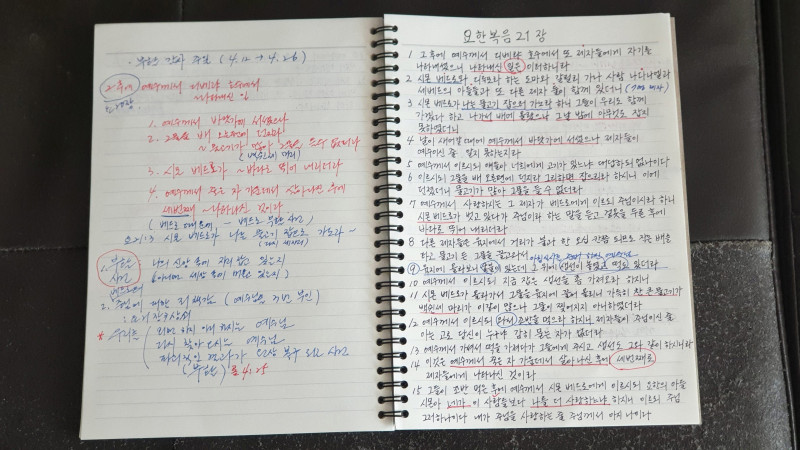 · 부활 간사 주일 (4.12 → 4.26)
그 후에 예수께서 디베랴 호수에서
~ 나타내신 일
1. 예수께서 바닷가에 서셨으나
2. 그물을 배 오른편에 던지라
~ 물고기가 많아 그물을 들 수 없더라
3. 시몬 베드로가 ~ 바다로 뛰어 내리더라
4. 예수께서 죽은 자 가운데서 살아나신 후에
세번째로 ~ 나타나신 것이라
요 21:3 시몬 베드로가 나는 물고기 잡으러 가노라 ~
1. 부활
사건
나의 신앙 속에
2. 주님에 대한 죄책감 (예수님을 3번 부인)
* 우리를
예수님
다시 찾아 오시는 예수님
롬 4:25
요한복음 21장
1 그 후에 예수께서 디베랴 호수에서 또 제자들에게 자기를
나타내셨으니 나타내신 일은 이러하니라
2 시몬 베드로와 디두모라 하는 도마와 갈릴리 가나 사람 나다나엘과
세베대의 아들들과 또 다른 제자 둘이 함께 있더니
3 시몬 베드로가 나는 물고기 잡으러 가노라 하니 그들이 우리도 함께
가겠다 하고 나가서 배에 올랐으나 그날 밤에 아무것도 잡지
못하였더니
4 날이 새어갈 때에 예수께서 바닷가에 서셨으나 제자들이
예수이신 줄 알지 못하는지라
5 예수께서 이르시되 얘들아 너희에게 고기가 있느냐 대답하되 없나이다
6 이르시되 그물을 배 오른편에 던지라 그리하면 잡으리라 하시니 이에
던졌더니 물고기가 많아 그물을 들 수 없더라
7 예수께서 사랑하시는 그 제자가 베드로에게 이르되 주님이시라 하니
시몬 베드로가 벗고 있다가 주님이라 하는 말을 듣고 겉옷을 두른 후에
바다로 뛰어 내리더라
8 다른 제자들은 육지에서 거리가 불과 한 오십 칸쯤 되므로 작은 배를 타고
하고 물고기 든 그물을 끌고와서
9 육지에 올라보니 숯불이 있는데 그 위에 생선이 놓였고 떡도 있더라
10 예수께서 이르시되 지금 잡은 생선을 좀 가져오라 하시니
11 시몬 베드로가 올라가서 그물을 육지에 끌어 올리니 가득히 찬 큰 물고기가
백쉰세 마리라 이같이 많으나 그물이 찢어지지 아니하였더라
12 예수께서 이르시되 와서 조반을 먹으라 하시니 제자들이 주님이신 줄
아는 고로 당신이 누구냐 감히 묻는 자가 없더라
13 예수께서 가셔서 떡을 가져다가 그들에게 주시고 생선도 그와 같이 하시니라
14 이것은 예수께서 죽은 자 가운데서 살아나신 후에 세번째로
제자들에게 나타나신 것이라
15 그들이 조반 먹은 후에 예수께서 시몬 베드로에게 이르시되 요한의 아들
시몬아 네가 이 사람들보다 나를 더 사랑하느냐 하시니 이르되 주님
그러하나이다 내가 주님을 사랑하는 줄 주님께서 아시나이다